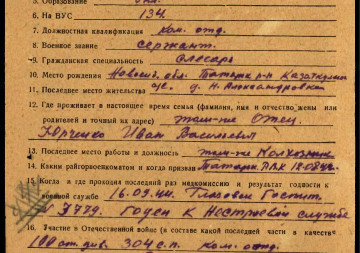 5. Образование
6. На ВУС 134
7. Должностная квалификация Ком. отд.
8. Военное звание сержант.
9. Гражданская специальность Слесарь
10. Место рождения Новоси. обл. Татарск. р-н Казаткульск
11. Последнее место жительства с/с. д. Н. Александровка
12. Где проживает в настоящее время семья (фамилия, имя и отчество жены или
родителей и точный их адрес) там-же Отец
Юрченко Иван Васильевич
13. Последнее место работы и должность там-же Колхозник
14. Каким райгорвоенкоматом и когда призван Татарск. РВК
15. Когда и где проходил последний раз медкомиссию и результат годности к
военной службе 16.09.44. Глазовск Госпит.
№ 3779. годен к нестроевой службе
16. Участие в Отечественной войне (в составе какой последней части и в качестве
100 отд. див. 304 с.п. Ком. отд.